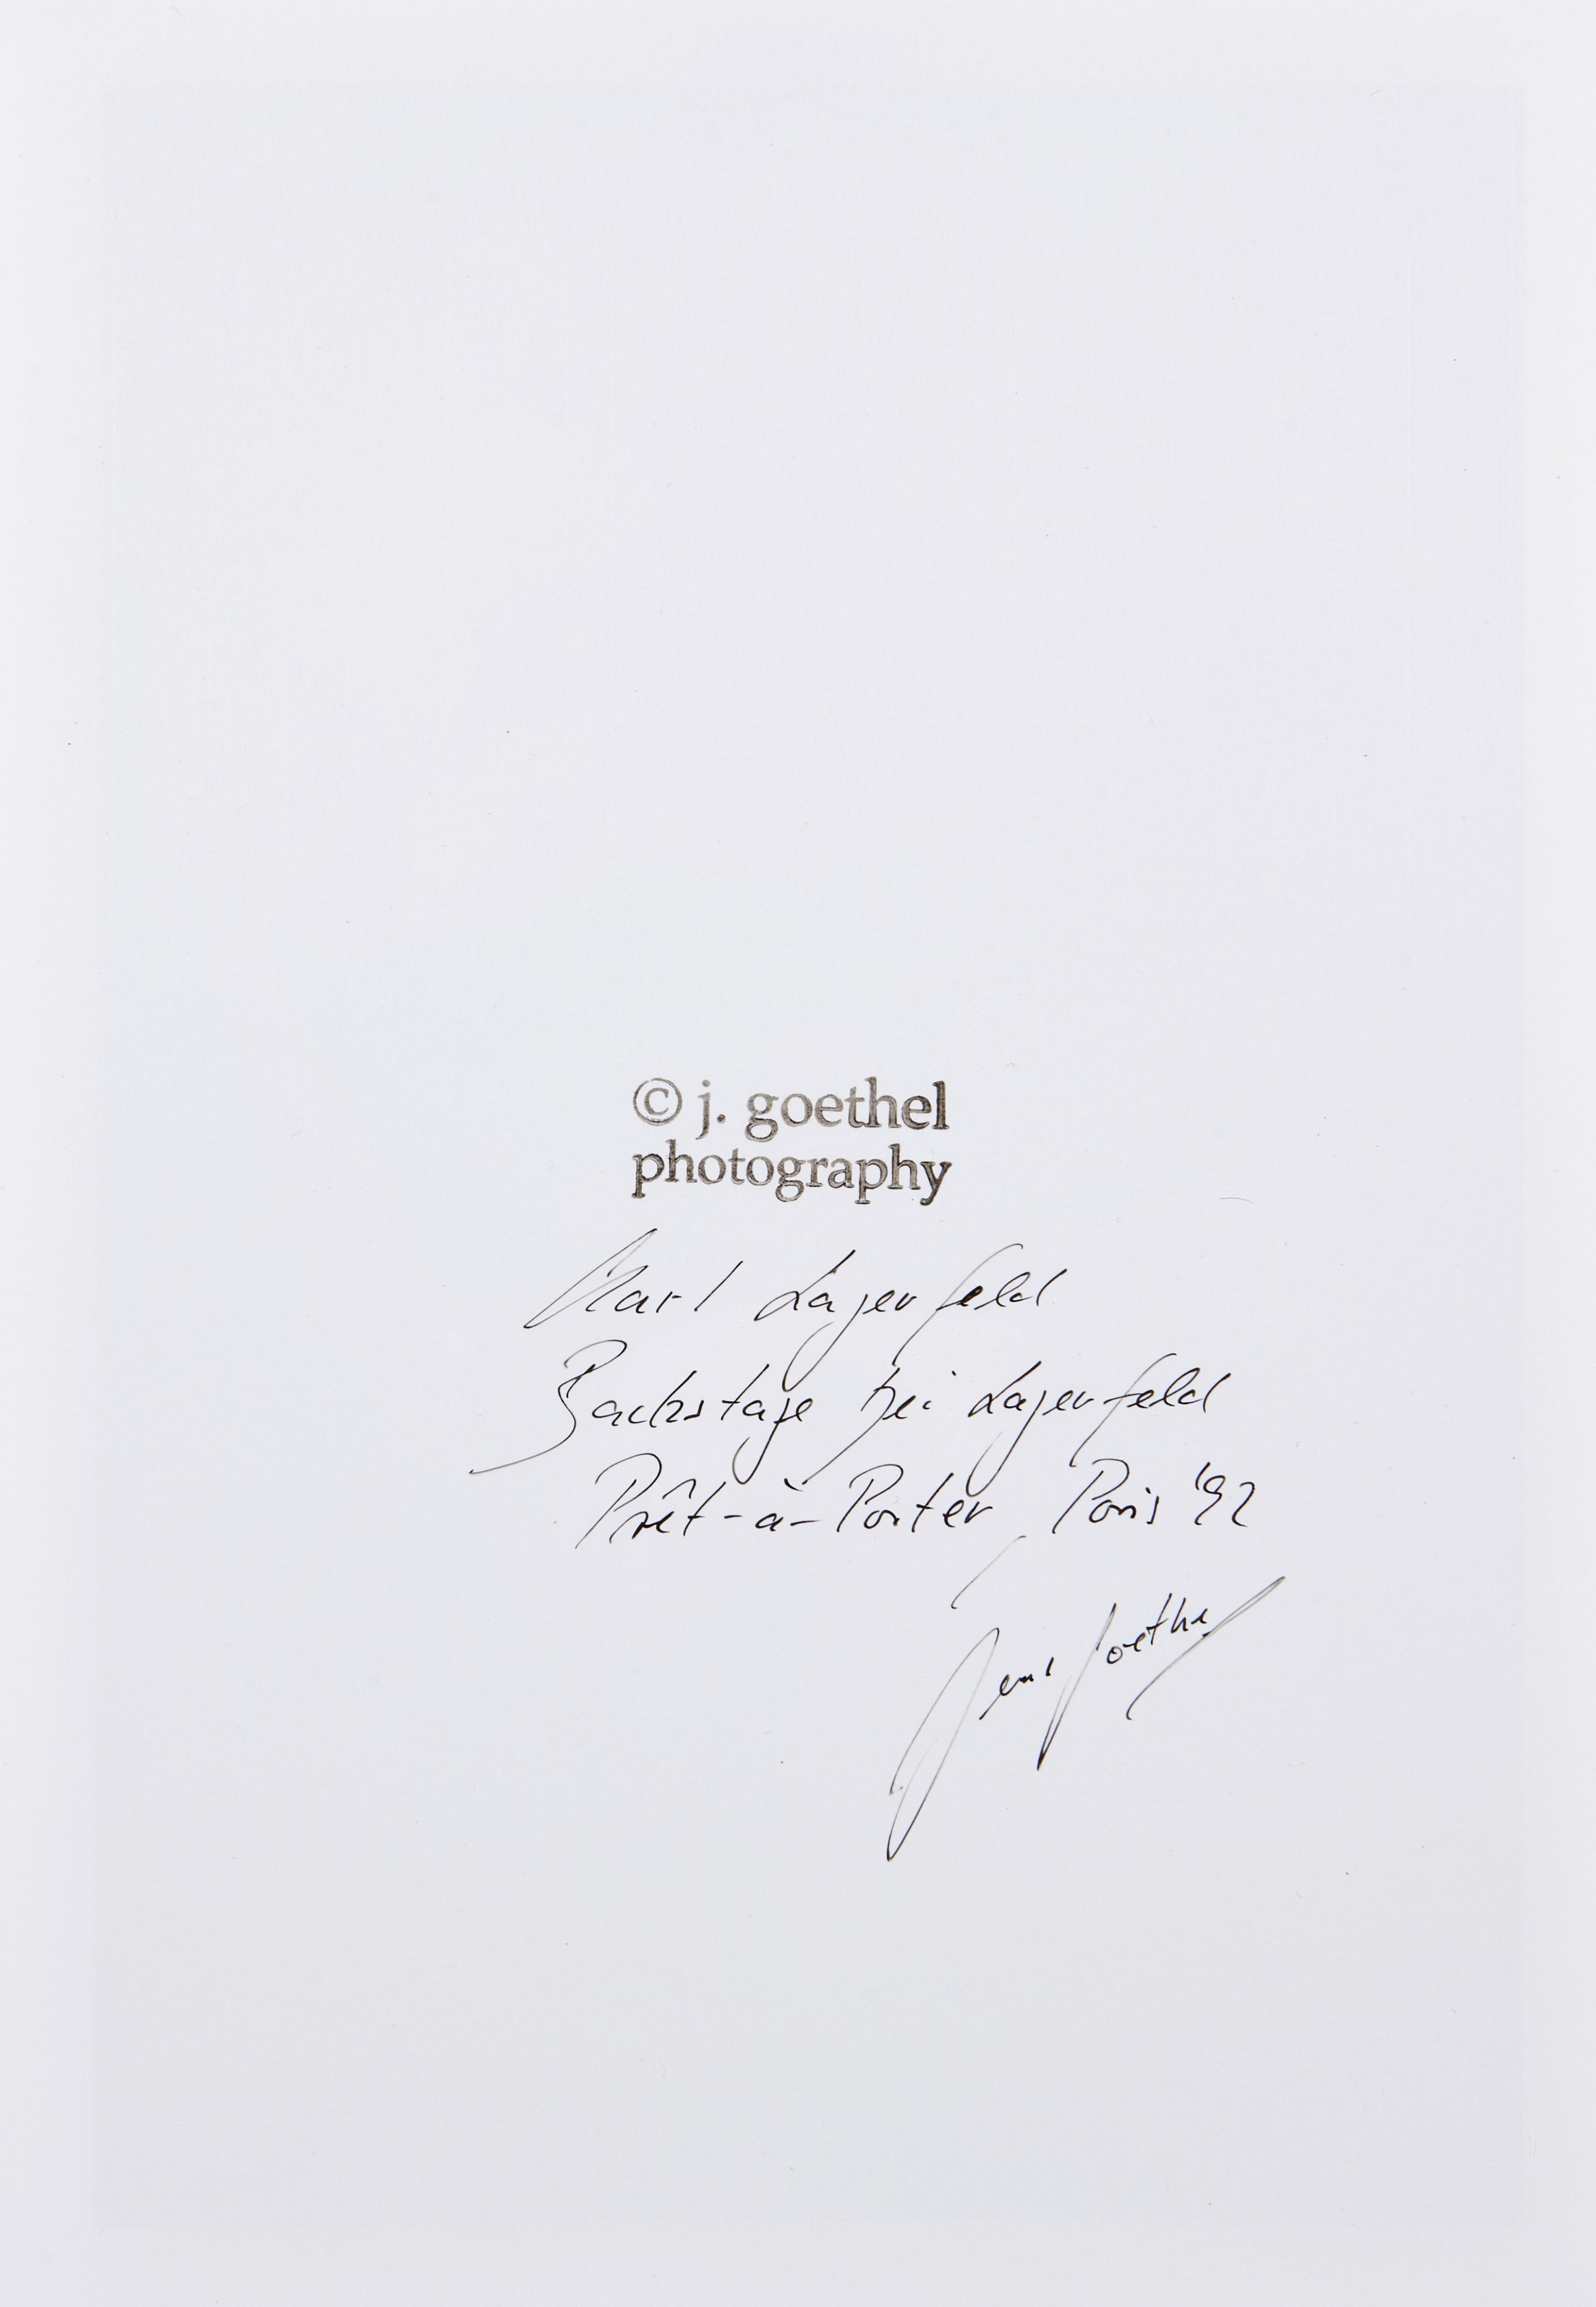 © j. goethel
photography
Karl Lagerfeld
Backstage bei Lagerfeld
Prêt-à-Porter, Paris '92
Jens Goethel